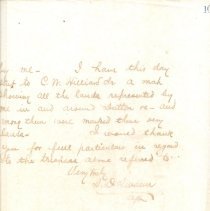 by me - I have this day
sent to C. W. Hilliard Jr. a map
showing all the lands represented by
me in and around Hatton &c - and
among them were marked these very
lands - I would thank
you for full particulars in regard
to the business above referred to -
Very truly